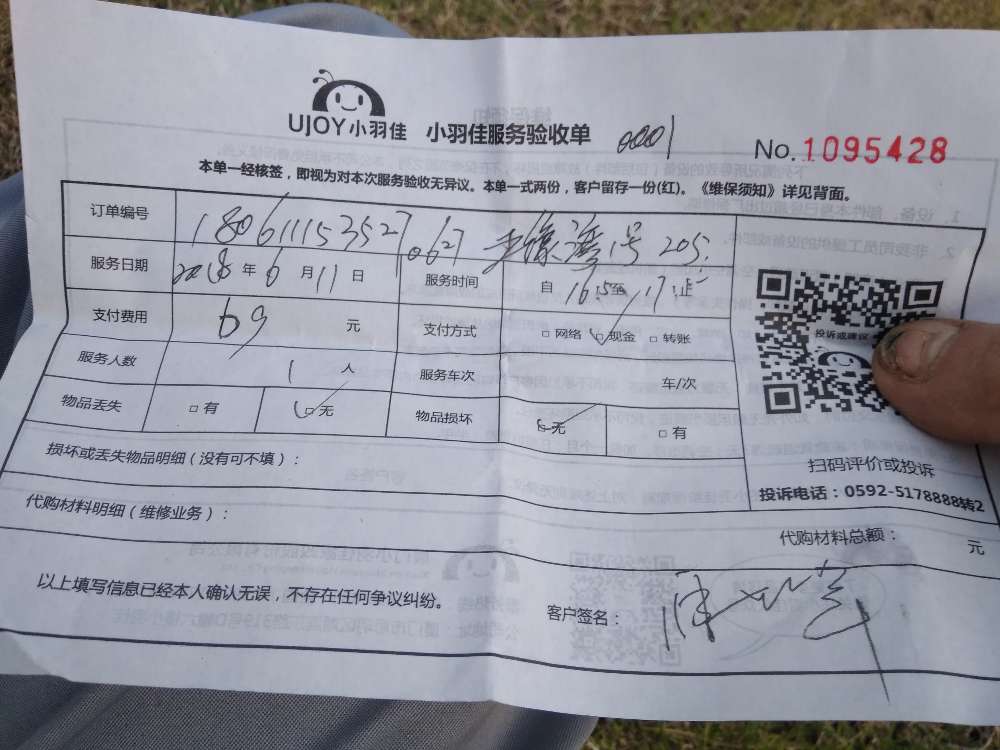 UJOY小羽佳 小羽佳服务验收单 0001 No.1095428
本单一经核签，即视为对本次服务验收无异议。本单一式两份，客户留存一份(红)。《维保须知》详见背面。
订单编号 180611153527 1号 205
服务日期 2018年6月11日 服务时间 自
支付费用 69 元 支付方式 □ 网络 □ 现金 □ 转账
投诉或建议
服务人数 1 人 服务车次 车/次
物品丢失 □ 有 □ 无 物品损坏 无 □ 有
损坏或丢失物品明细（没有可不填）：
扫码评价或投诉
投诉电话：0592-5178888转2
代购材料明细（维修业务）：
代购材料总额： 元
以上填写信息已经本人确认无误，不存在任何争议纠纷。
客户签名：